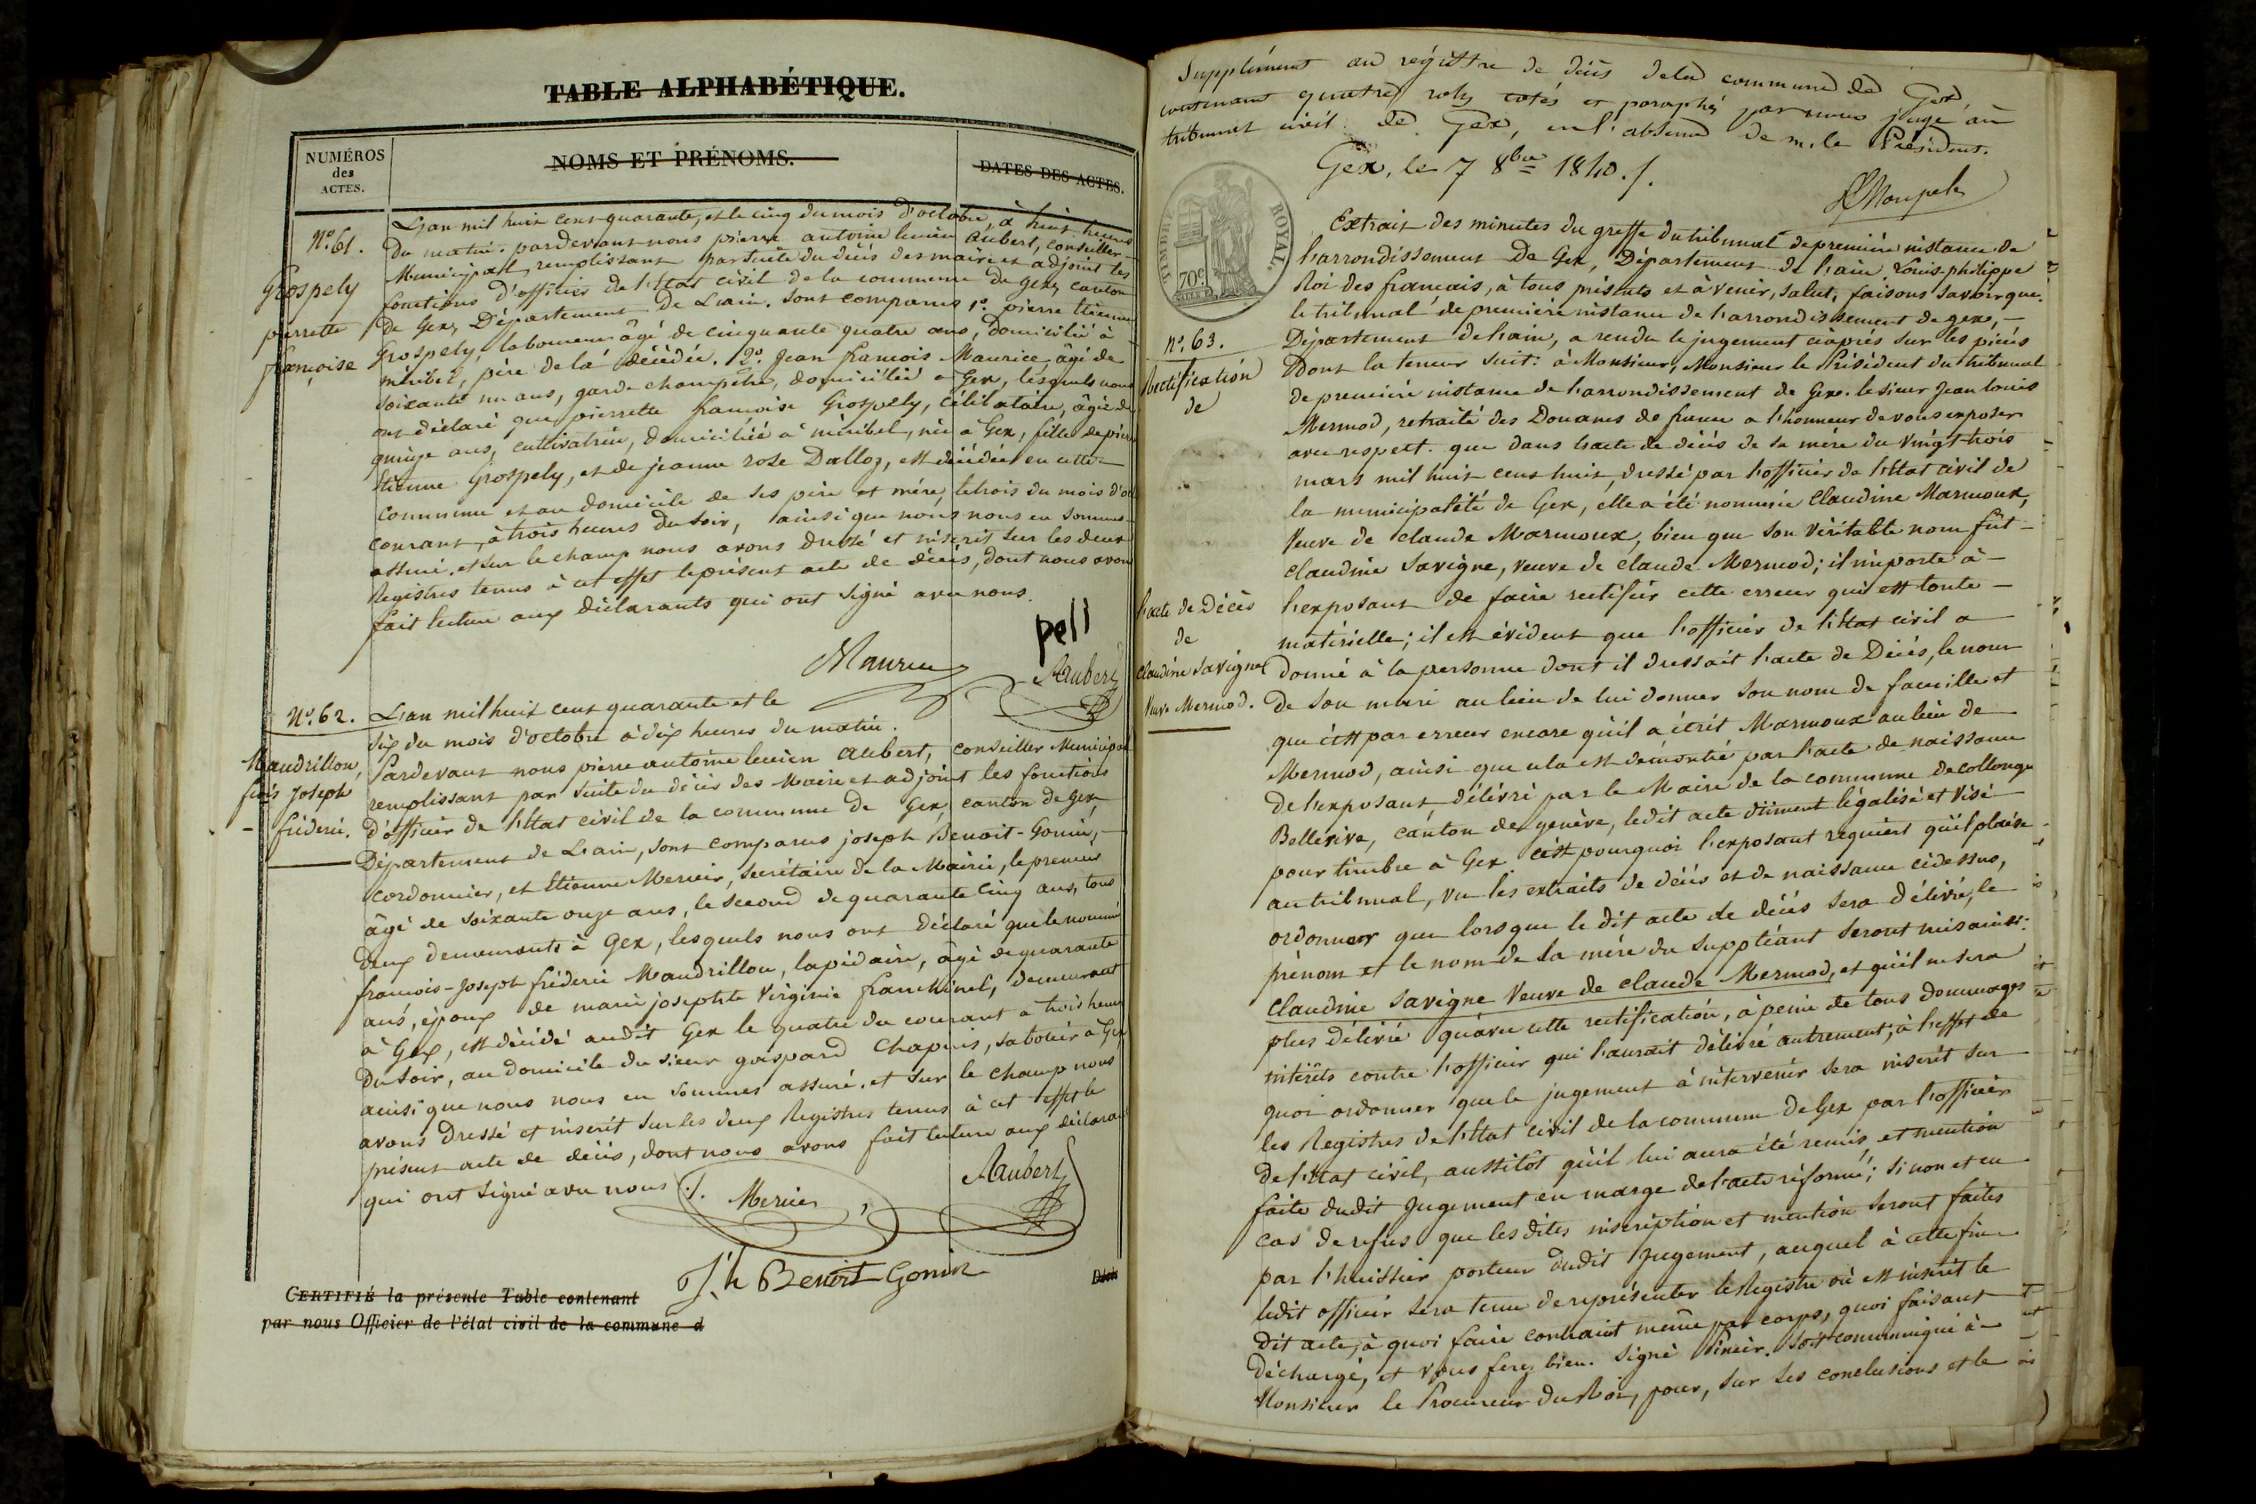 TABLE ALPHABÉTIQUE.
NUMÉROS
des
ACTES.
NOMS ET PRÉNOMS.
DATES DES ACTES.
N.º 61.
Grospely
pierrette
françoise
L'an mil huit cent quarante, et le cinq du mois d'octobre, à huit heures
du matin. pardevant nous pierre antoine lucien Aubert, conseiller-
Municipal, remplissant par suite du décès des maire et adjoint les
fonctions d'officier de l'état civil de la commune de Gex, canton
de Gex, Département de L'ain. sont comparus 1º. pierre Etienne
Grospely, laboureur âgé de cinquante quatre ans, domicilié à
miribel, père de la décédée. 2º. Jean françois Maurice âgé de
soixante un ans, garde champêtre, domicilié à Gex, lesquels nous
ont déclaré que pierrette françoise Grospely, célibataire, âgée de
quinze ans, cultivatrice, domiciliée à miribel, née à Gex, fille de pierre
Etienne Grospely, et de jeanne rose Dalloz, est décédée en cette
commune et au domicile de ses père et mère, le trois du mois d'oc
courant, à trois heures du soir, ainsi que nous nous en sommes
assuré. et sur le champ nous avons dressé et inscrit sur les deux
Registres tenus à cet effet le présent acte de décès, dont nous avons
fait lecture aux déclarants qui ont signé avec nous.
pell
Maurice
Aubert
N.º 62.
Mandrillon,
fçois Joseph
fréderic.
L'an mil huit cent quarante et le
six du mois d'octobre à dix heures du matin.
Pardevant nous pierre antoine lucien Aubert, conseiller Municipal
remplissant par suite du décès des Maire et adjoint les fonctions
d'officier de l'état civil de la commune de Gex, canton de Gex,
Département de L'ain, sont comparus joseph Benoit-Gonin,
cordonnier, et Etienne Mercier, secrétaire de la Mairie, le premier
âgé de soixante onze ans, le second de quarante cinq ans, tous
deux demeurants à Gex, lesquels nous ont déclaré que le nommé
françois-Joseph fréderic Mandrillon, lapidaire, âgé de quarante
ans, époux de marie josephte Virginie franchinel, demeurant
à Gex, est décédé audit Gex le quatre du courant à trois heures
du soir, au domicile du sieur gaspard Chapuis, sabotier à Gex
ainsi que nous nous en sommes assuré. et sur le champ nous
avons dressé et inscrit sur les deux Registres tenus à cet effet le
présent acte de décès, dont nous avons fait lecture aux déclarans
qui ont signé avec nous ./.
Mercier
Aubert
J.h Benoit Gonin
CERTIFIÉ la présente Table contenant
par nous Officier de l'état civil de la commune d
Supplément au régistre de décès dela commune de Gex,
contenant quatre rolês cotés et paraphés par nous juge au
tribunal civil de Gex, en l'absence de m. le Président.
Gex, le 7 8bre 1840./.
TIMBRE ROYAL.
70c
N.º 63.
Rectification
de
l'acte de Décès
de
Claudine Savigne
Veuve Mermod.
Extrait des minutes du greffe du tribunal de première instance de
l'arrondissement De Gex, Département de l'ain. Louis-philippe
Roi des français, à tous présents et à venir, salut, faisons savoir que.
le tribunal de première instance de l'arrondissement de gex,
Département de l'ain, a rendu le jugement ci-après sur les pièces
Dont la teneur suit: à Monsieur, Monsieur le Président du tribunal
de première instance de l'arrondissement de Gex. le sieur Jean louis
Mermod, retraité des Douanes de france a l'honneur de vous exposer
avec respect. que dans l'acte de décès de sa mère du vingt trois
mars mil huit cent huit, dressé par l'officier de l'état civil de
la municipalité de Gex, elle a été nommée Claudine Marmoux,
Veuve de claude Marmoux, bien que son véritable nom fût
claudine Savigne, veuve de claude Mermod; il importe à
l'exposant de faire rectifier cette erreur qui est toute
matérielle; il est évident que l'officier de l'état civil a
donné à la personne dont il dressait l'acte de Décès, le nom
de son mari au lieu de lui donner son nom de famille et
que c'est par erreur encore qu'il a écrit Marmoux au lieu de
Mermod, ainsi que cela est démontré par l'acte de naissance
de l'exposant délivré par le Maire de la commune de collonge
Bellerive, canton de genève, ledit acte dûment légalisé et visé
pour timbre à Gex c'est pourquoi l'exposant requiert qu'il plaise
au tribunal, vu les extraits de décès et de naissance cidessus,
ordonner que lorsque le dit acte de décès sera délivré, le
prénom et le nom de la mère du suppliant seront mis ainsi:
Claudine Savigne Veuve de claude Mermod, et qu'il ne sera
plus délivré qu'avec cette rectification, à peine de tous dommages
intérêts contre l'officier qui l'aurait délivré autrement; à l'effet de
quoi ordonner que le jugement à intervenir sera inscrit sur
les Registres de l'état civil de la commune de Gex par l'officier
de l'état civil, aussitôt qu'il lui aura été remis et mention
faite dudit Jugement en marge de l'acte réformé; si non et en
cas de refus que les dites inscription et mention seront faites
par l'huissier porteur dudit Jugement, auquel à cette fin
ledit officier sera tenu de représenter le Registre où est inscrit le
dit acte, à quoi faire contraint même par corps, quoi faisant
déchargé, et vous ferez bien. Signé . soit communiqué à
Monsieur le Procureur du Roi, pour, sur ses conclusions et le